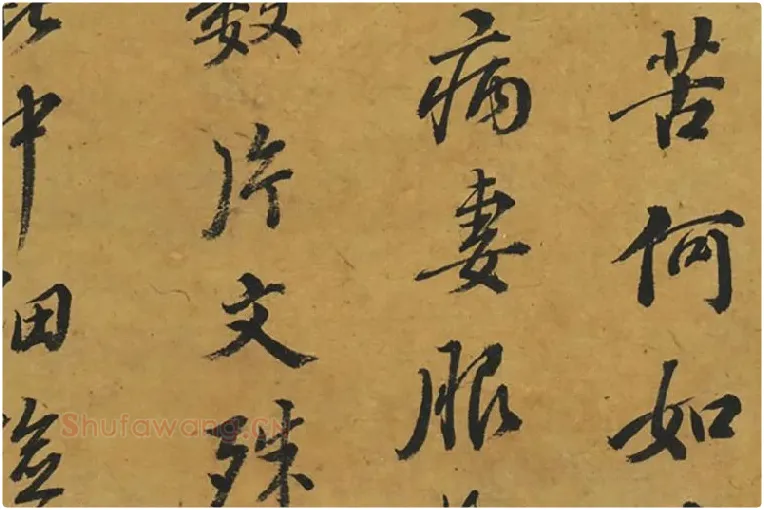 苦何如
病妻服
數片文殊
中細
Shufawang.cn